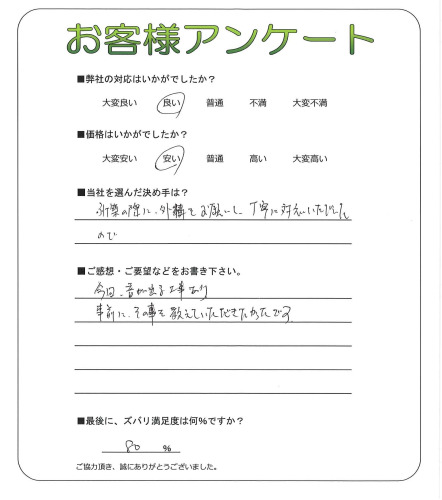 お客様アンケート
■弊社の対応はいかがでしたか？
大変良い 良い 普通 不満 大変不満
■価格はいかがでしたか？
大変安い 安い 普通 高い 大変高い
■当社を選んだ決め手は？
新築の際に、外構をお願いし、丁寧に対応いただいた
ので
■ご感想・ご要望などをお書き下さい。
今回、音が出る工事あり
事前に、その事を教えていただきたかったです
■最後に、ズバリ満足度は何％ですか？
80 ％
ご協力頂き、誠にありがとうございました。